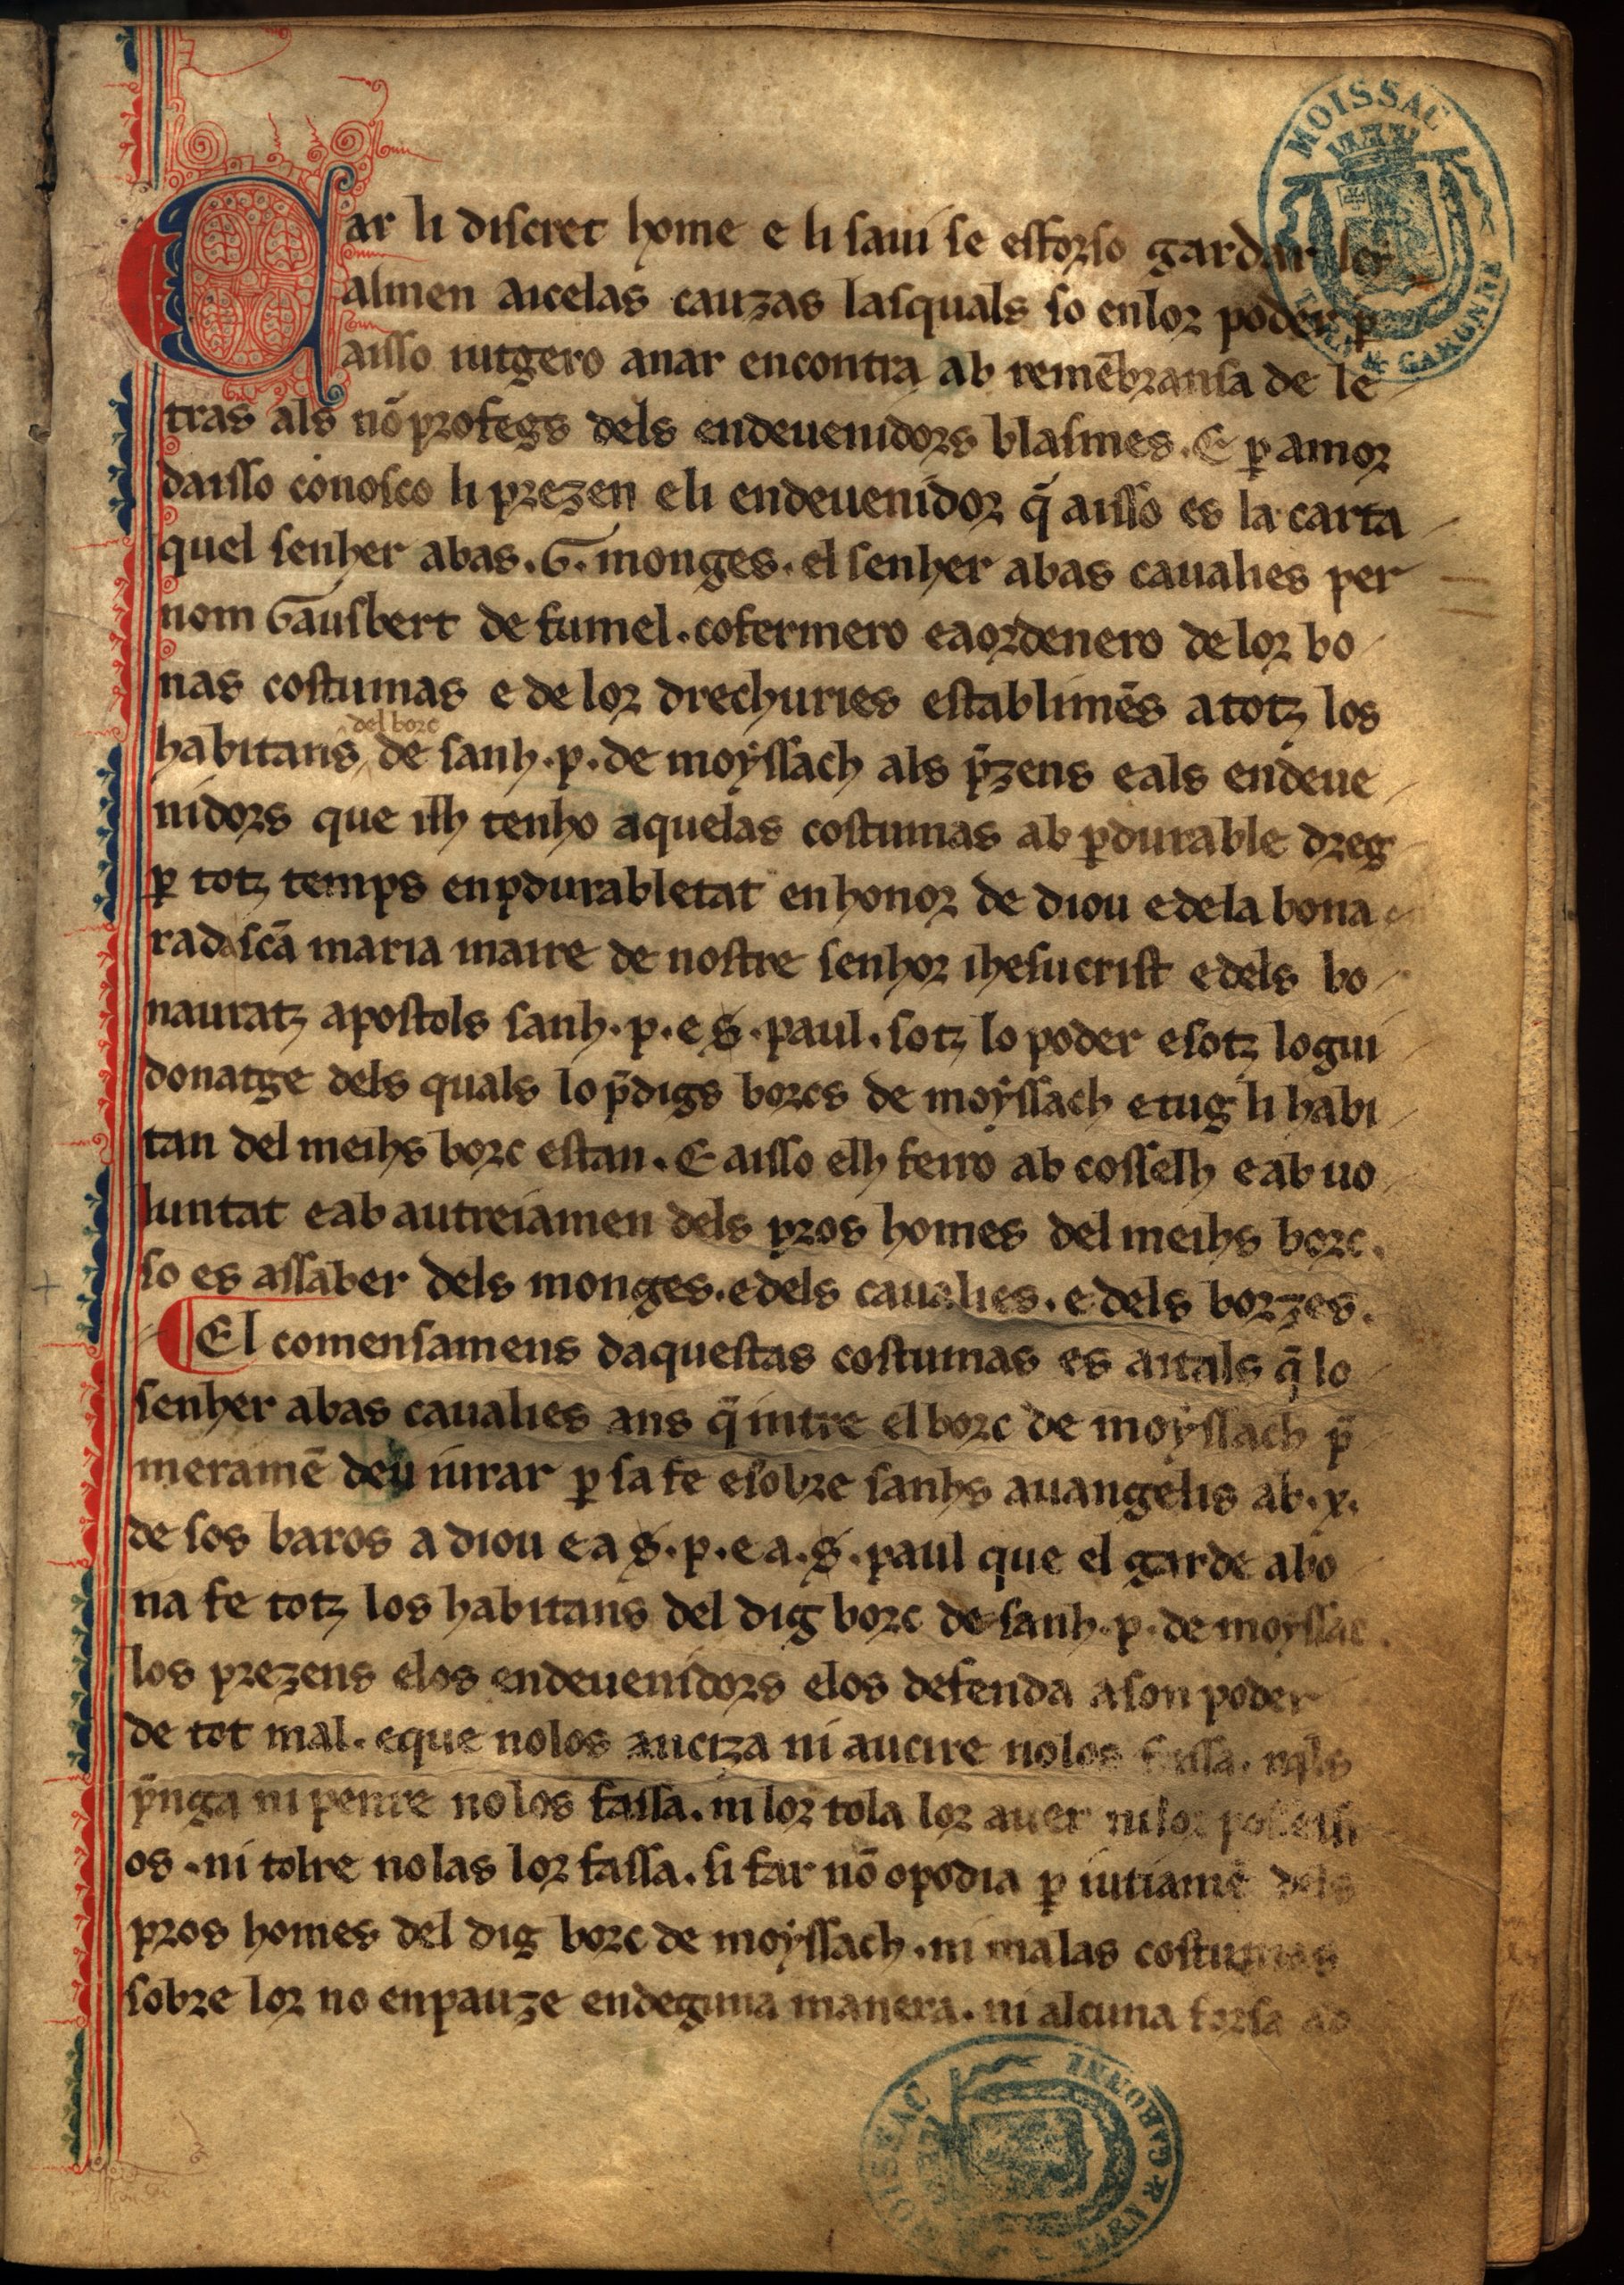 MOISSAC
TARN & GARONNE
Car li discret home e li saui se efforso gardar lei
almen aicelas cauzas lasquals so en lor poder p̱
aisso iutgero anar encontra ab remēbransa de le
tras als nō profegs dels endeuenidors blasmes. E p̱ amor
daisso conosco li prezen e li endeuenidor q̄ aisso es la carta
quel senher abas. G. monges. el senher abas caualies per
nom Gausbert de fumel. cofermero e aordenero de lor bo
nas costumas e de lor drechuries establimēs a totz los
del borc
habitans de sanh. p. de moyssach als p̄zens e als endeue
nidors que ilh tenho aquelas costumas ab p̱durable dreg
p̱ totz temps en p̱durabletat en honor de diou e de la bona
rada scā maria maire de nostre senhor ihesucrist e dels bo
nauratz apostols sanh. p. e s. paul. sotz lo poder e sotz lo gui
donatge dels quals lo p̄digs borcs de moyssach e tug li habi
tan del meihs borc estan. E aisso elh feiro ab cosselh e ab uo
luntat e ab autreiamen dels pros homes del meihs borc.
so es assaber dels monges. e dels caualies. e dels borzes.
El comensamens daquestas costumas es aitals q̄ lo
senher abas caualies ans q̄ intre el borc de moyssach p̄
meramē deu iurar p̱ sa fe e sobre sanhs auangelis ab. x.
de sos baros a diou e a s. p. e a. s. paul que el garde a bo
na fe totz los habitans del dig borc de sanh. p. de moyssac
los prezens e los endeuenidors e los defenda a son poder
de tot mal. e que no los auciza ni aucire no los fassa.
p̄nga ni penre no los faisa. ni lor tola lor auer ni lor possessi
os. ni tolre no las lor fassa. si far nō o podia p̱ iutiamē dels
pros homes del dig borc de moyssach. ni malas costumas
sobre lor no enpauze en deguna manera. ni alcuna forsa
MOISSAC
TARN & GARONNE